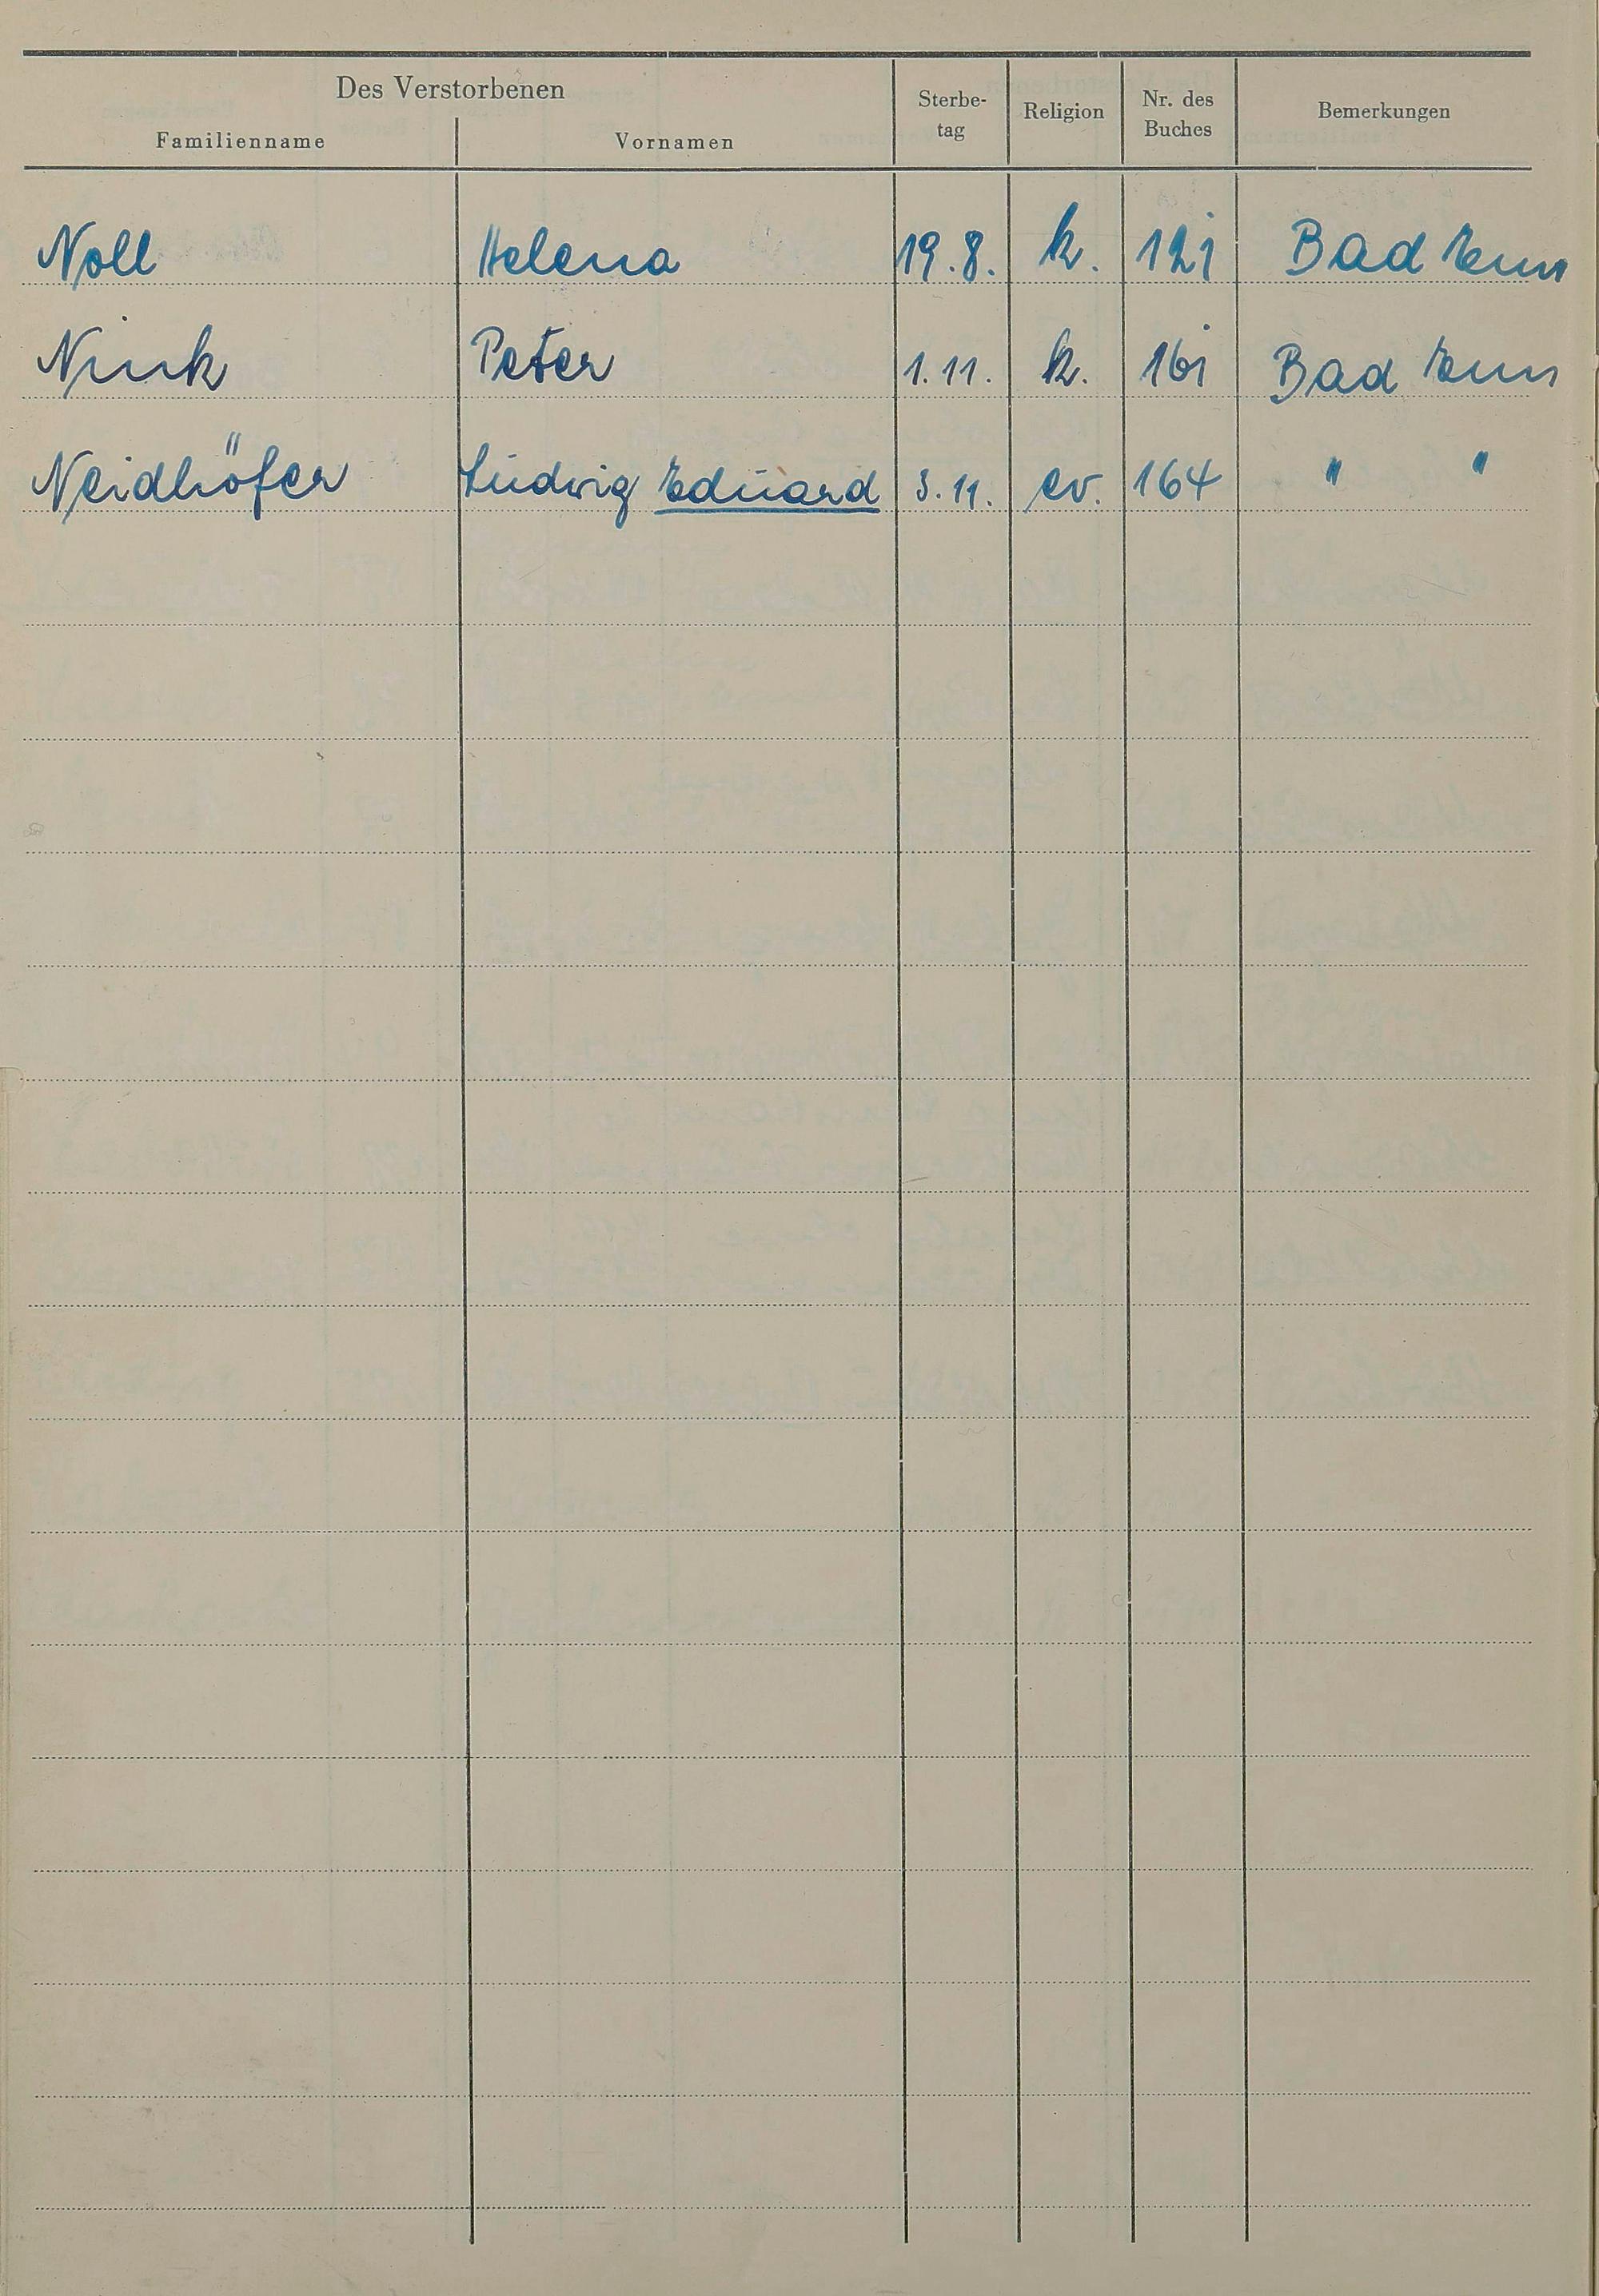 Des Verstorbenen
Familienname Vornamen Sterbe-tag Religion Nr. des Buches Bemerkungen
Noll Helena 19.8. k. 121 Bad Ems
Nink Peter 1.11. k. 161 Bad Ems
Neidhöfer Ludwig Eduard 3.11. ev. 164 " "